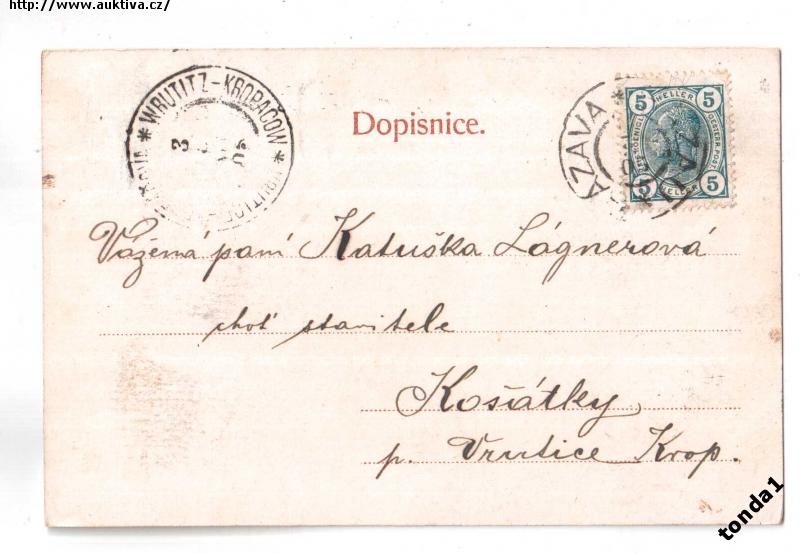 http://www.auktiva.cz/
WRUTITZ-KROPACOW
Dopisnice.
AZAVA
5 HELLER 5
5 HELLER 5
Vážená paní Katuška Lágnerová
choť stavitele
Košátky
p. Vrutice Krop.
tonda1